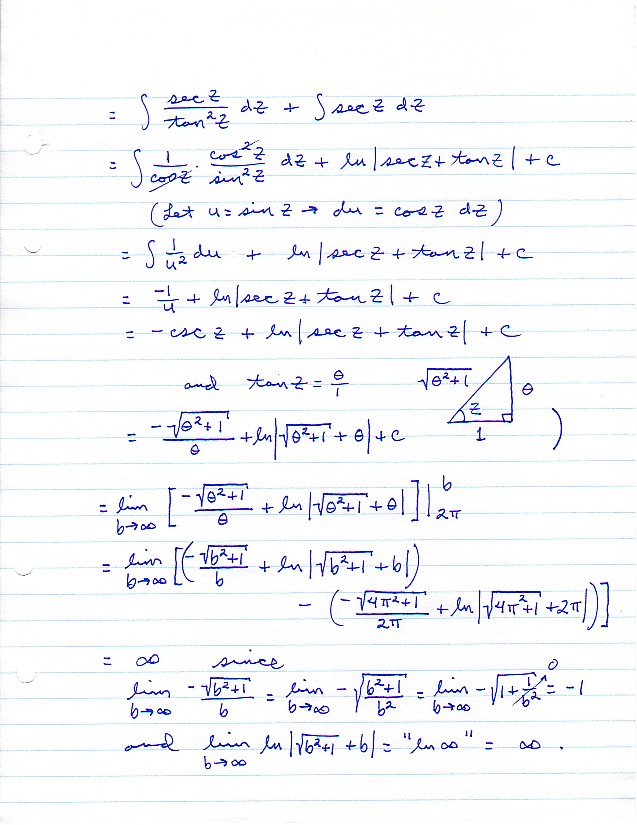 = ∫ sec z / tan² z dz + ∫ sec z dz
= ∫ 1/cos z · cos² z / sin² z dz + ln|sec z + tan z| + c
(Let u = sin z → du = cos z dz)
= ∫ 1/u² du + ln|sec z + tan z| + c
= -1/u + ln|sec z + tan z| + c
= -csc z + ln|sec z + tan z| + c
and tan z = θ/1 √(θ²+1) θ z 1
= -√(θ²+1)/θ + ln|√(θ²+1) + θ| + c )
= lim b→∞ [ -√(θ²+1)/θ + ln|√(θ²+1) + θ| ] |_{2π}^{b}
= lim b→∞ [ ( -√(b²+1)/b + ln|√(b²+1) + b| )
- ( -√(4π²+1)/2π + ln|√(4π²+1) + 2π| ) ]
= ∞ since
lim b→∞ -√(b²+1)/b = lim b→∞ -√((b²+1)/b²) = lim b→∞ -√(1 + 1/b²) 0 = -1
and lim b→∞ ln|√(b²+1) + b| = "ln ∞" = ∞ .